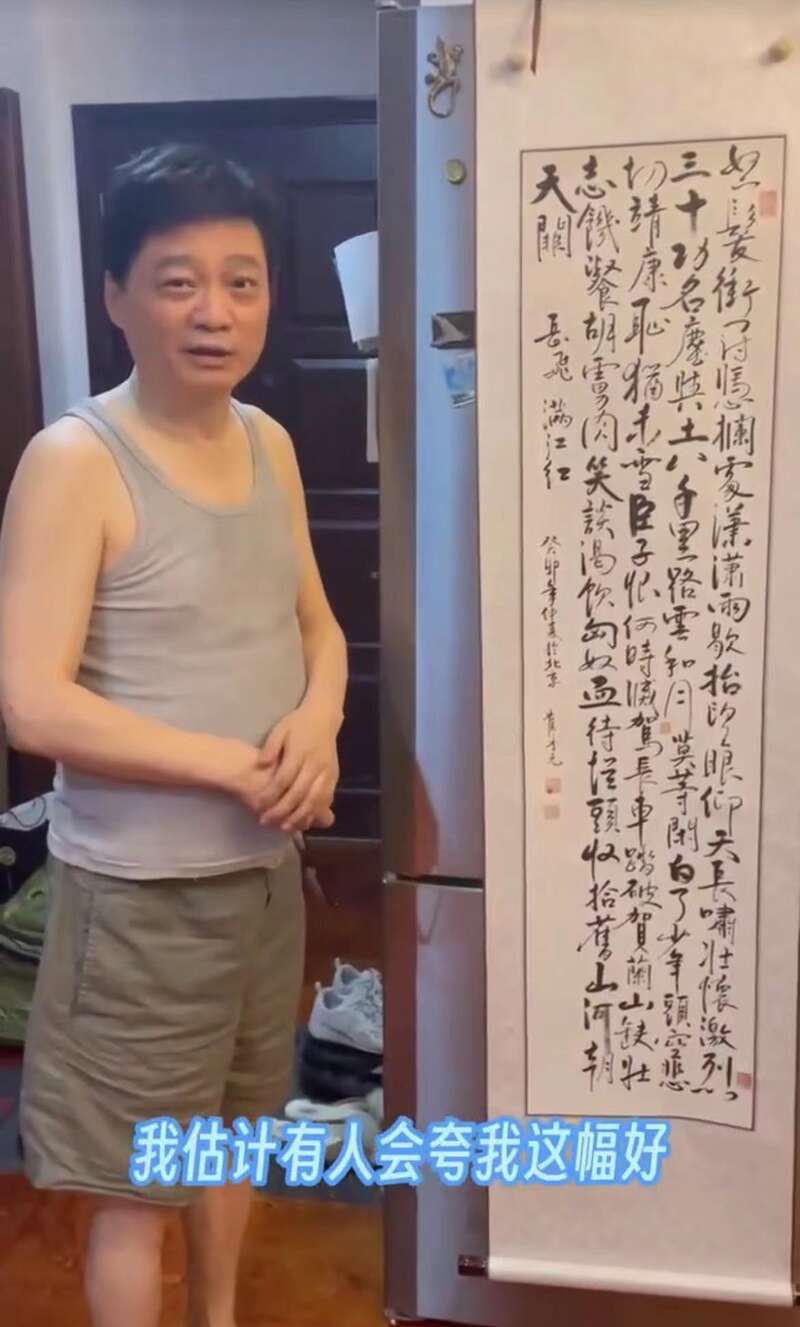 怒髮衝冠憑欄處瀟瀟雨歇抬望眼仰天長嘯壯懷激烈
三十功名塵與土八千里路雲和月莫等閑白了少年頭空悲
切靖康恥猶未雪臣子恨何時滅駕長車踏破賀蘭山缺壯
志饑餐胡虜肉笑談渴飲匈奴血待從頭收拾舊山河朝
天闕 岳飛 滿江红 癸卯年仲夏於北京 崔永元
我估计有人会夸我这幅好